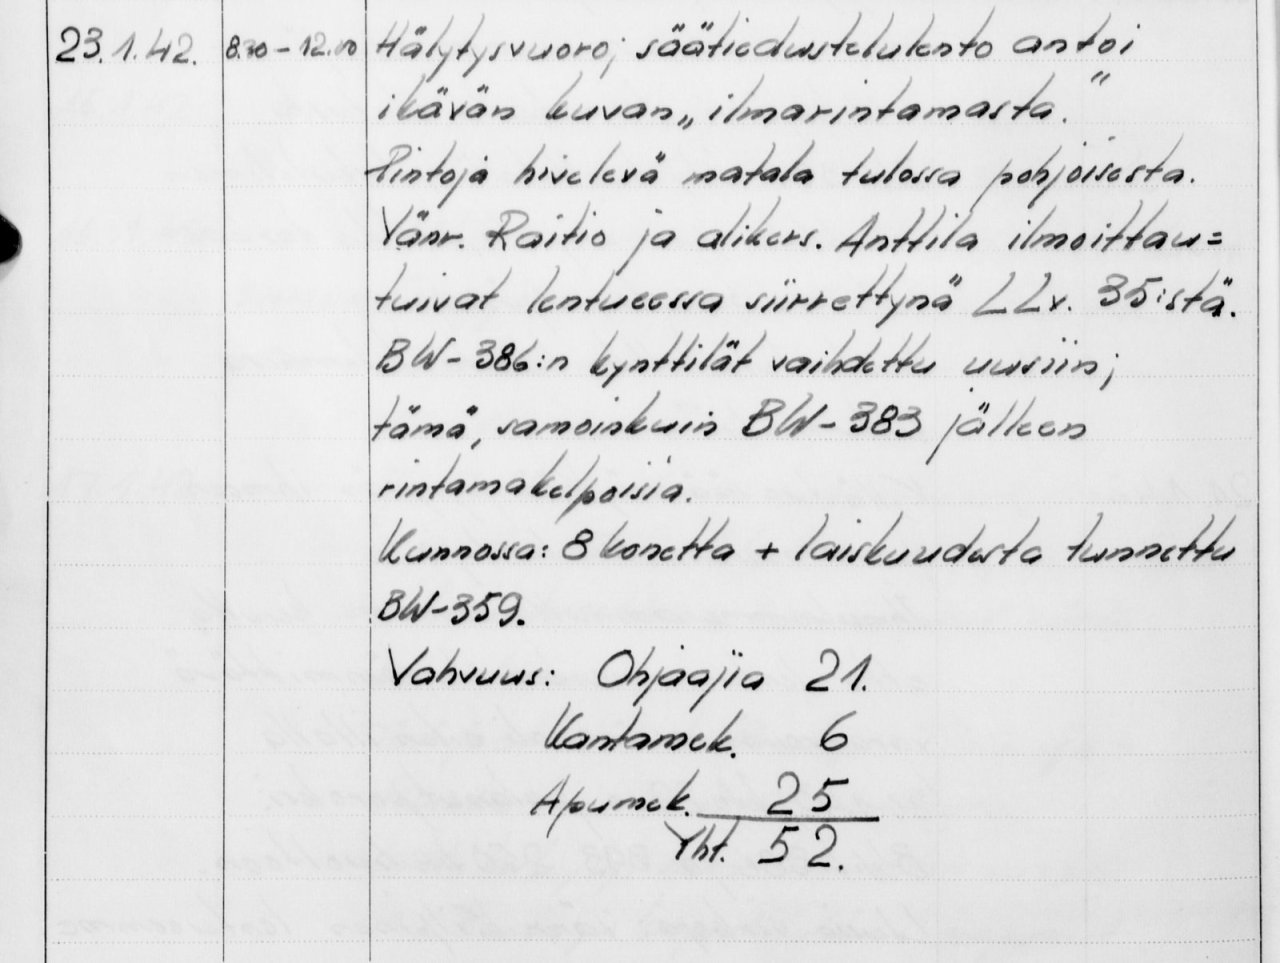 23.1.42. 8.30-12.00 Hälytysvuoro; säätiedustelulento antoi
ikävän kuvan „ilmarintamasta.”
Pintoja hivelevä matala tulossa pohjoisesta.
Vänr. Raitio ja alikers. Anttila ilmoittau=
tuivat lentueessa siirrettynä LLv. 35:stä.
BW-386:n kynttilät vaihdettu uusiin;
tämä, samoinkuin BW-383 jälleen
rintamakelpoisia.
Kunnossa: 8 konetta + laiskuudesta tunnettu
BW-359.
Vahvuus: Ohjaajia 21.
Kantamek. 6
Apumek. 25
Yht. 52.